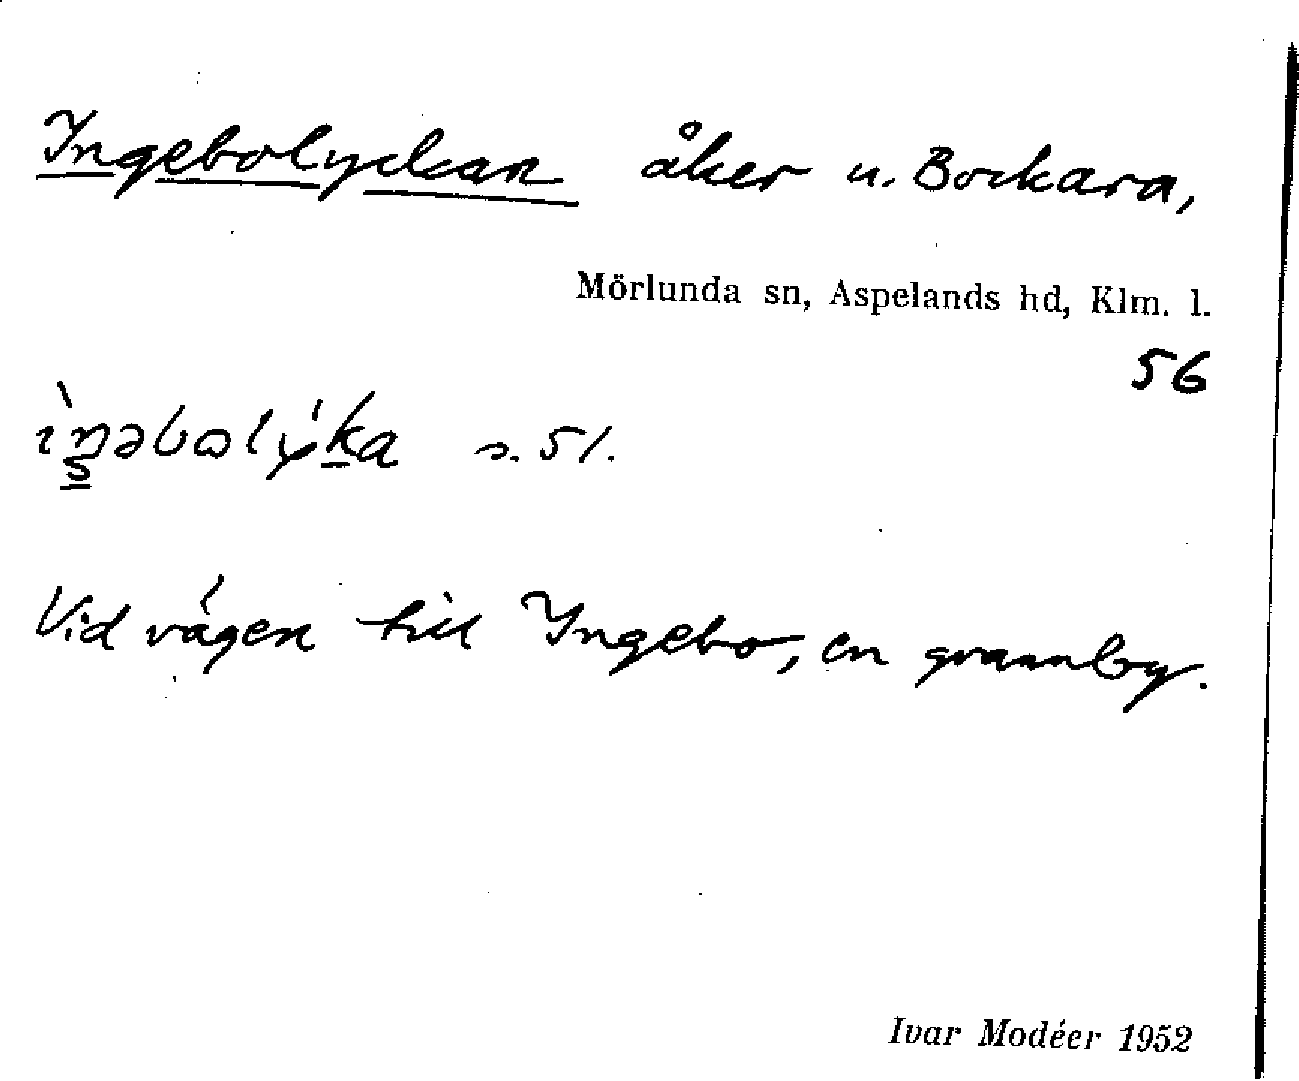 Ingebolyckan åker u. Bockara,
Mörlunda sn, Aspelands hd, Klm. l.
56
s. 51.
Vid vägen till Ingebo, en grannby.
Ivar Modéer 1952